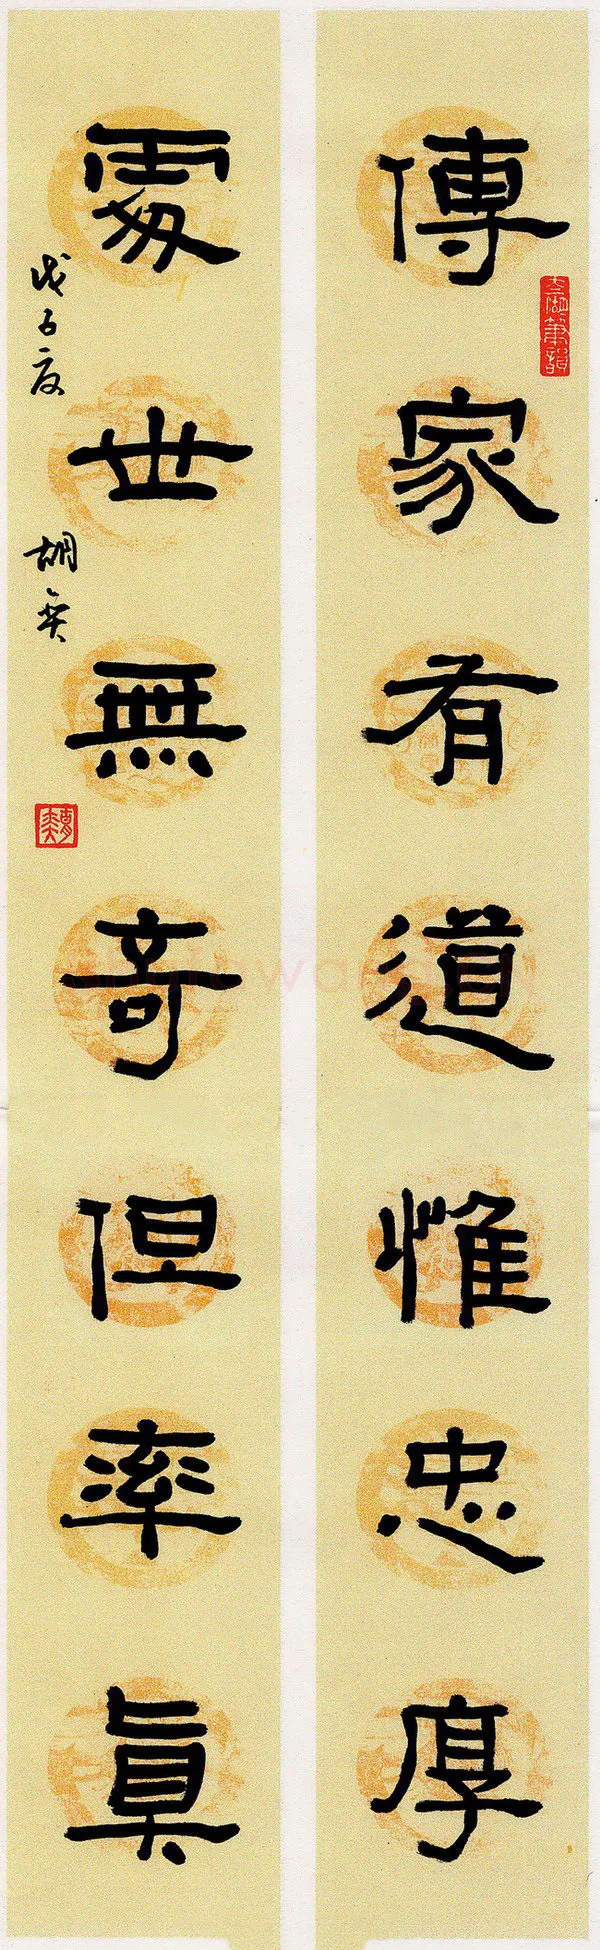 傳家有道惟忠厚
處世無奇但率眞
戊子夏
胡奕